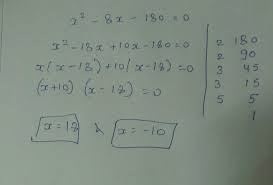 x² - 8x - 180 = 0
x² - 18x + 10x - 180 = 0
x(x - 18) + 10(x - 18) = 0
(x + 10) (x - 18) = 0
x = 18 & x = -10
2 | 180
2 | 90
3 | 45
3 | 15
5 | 5
1